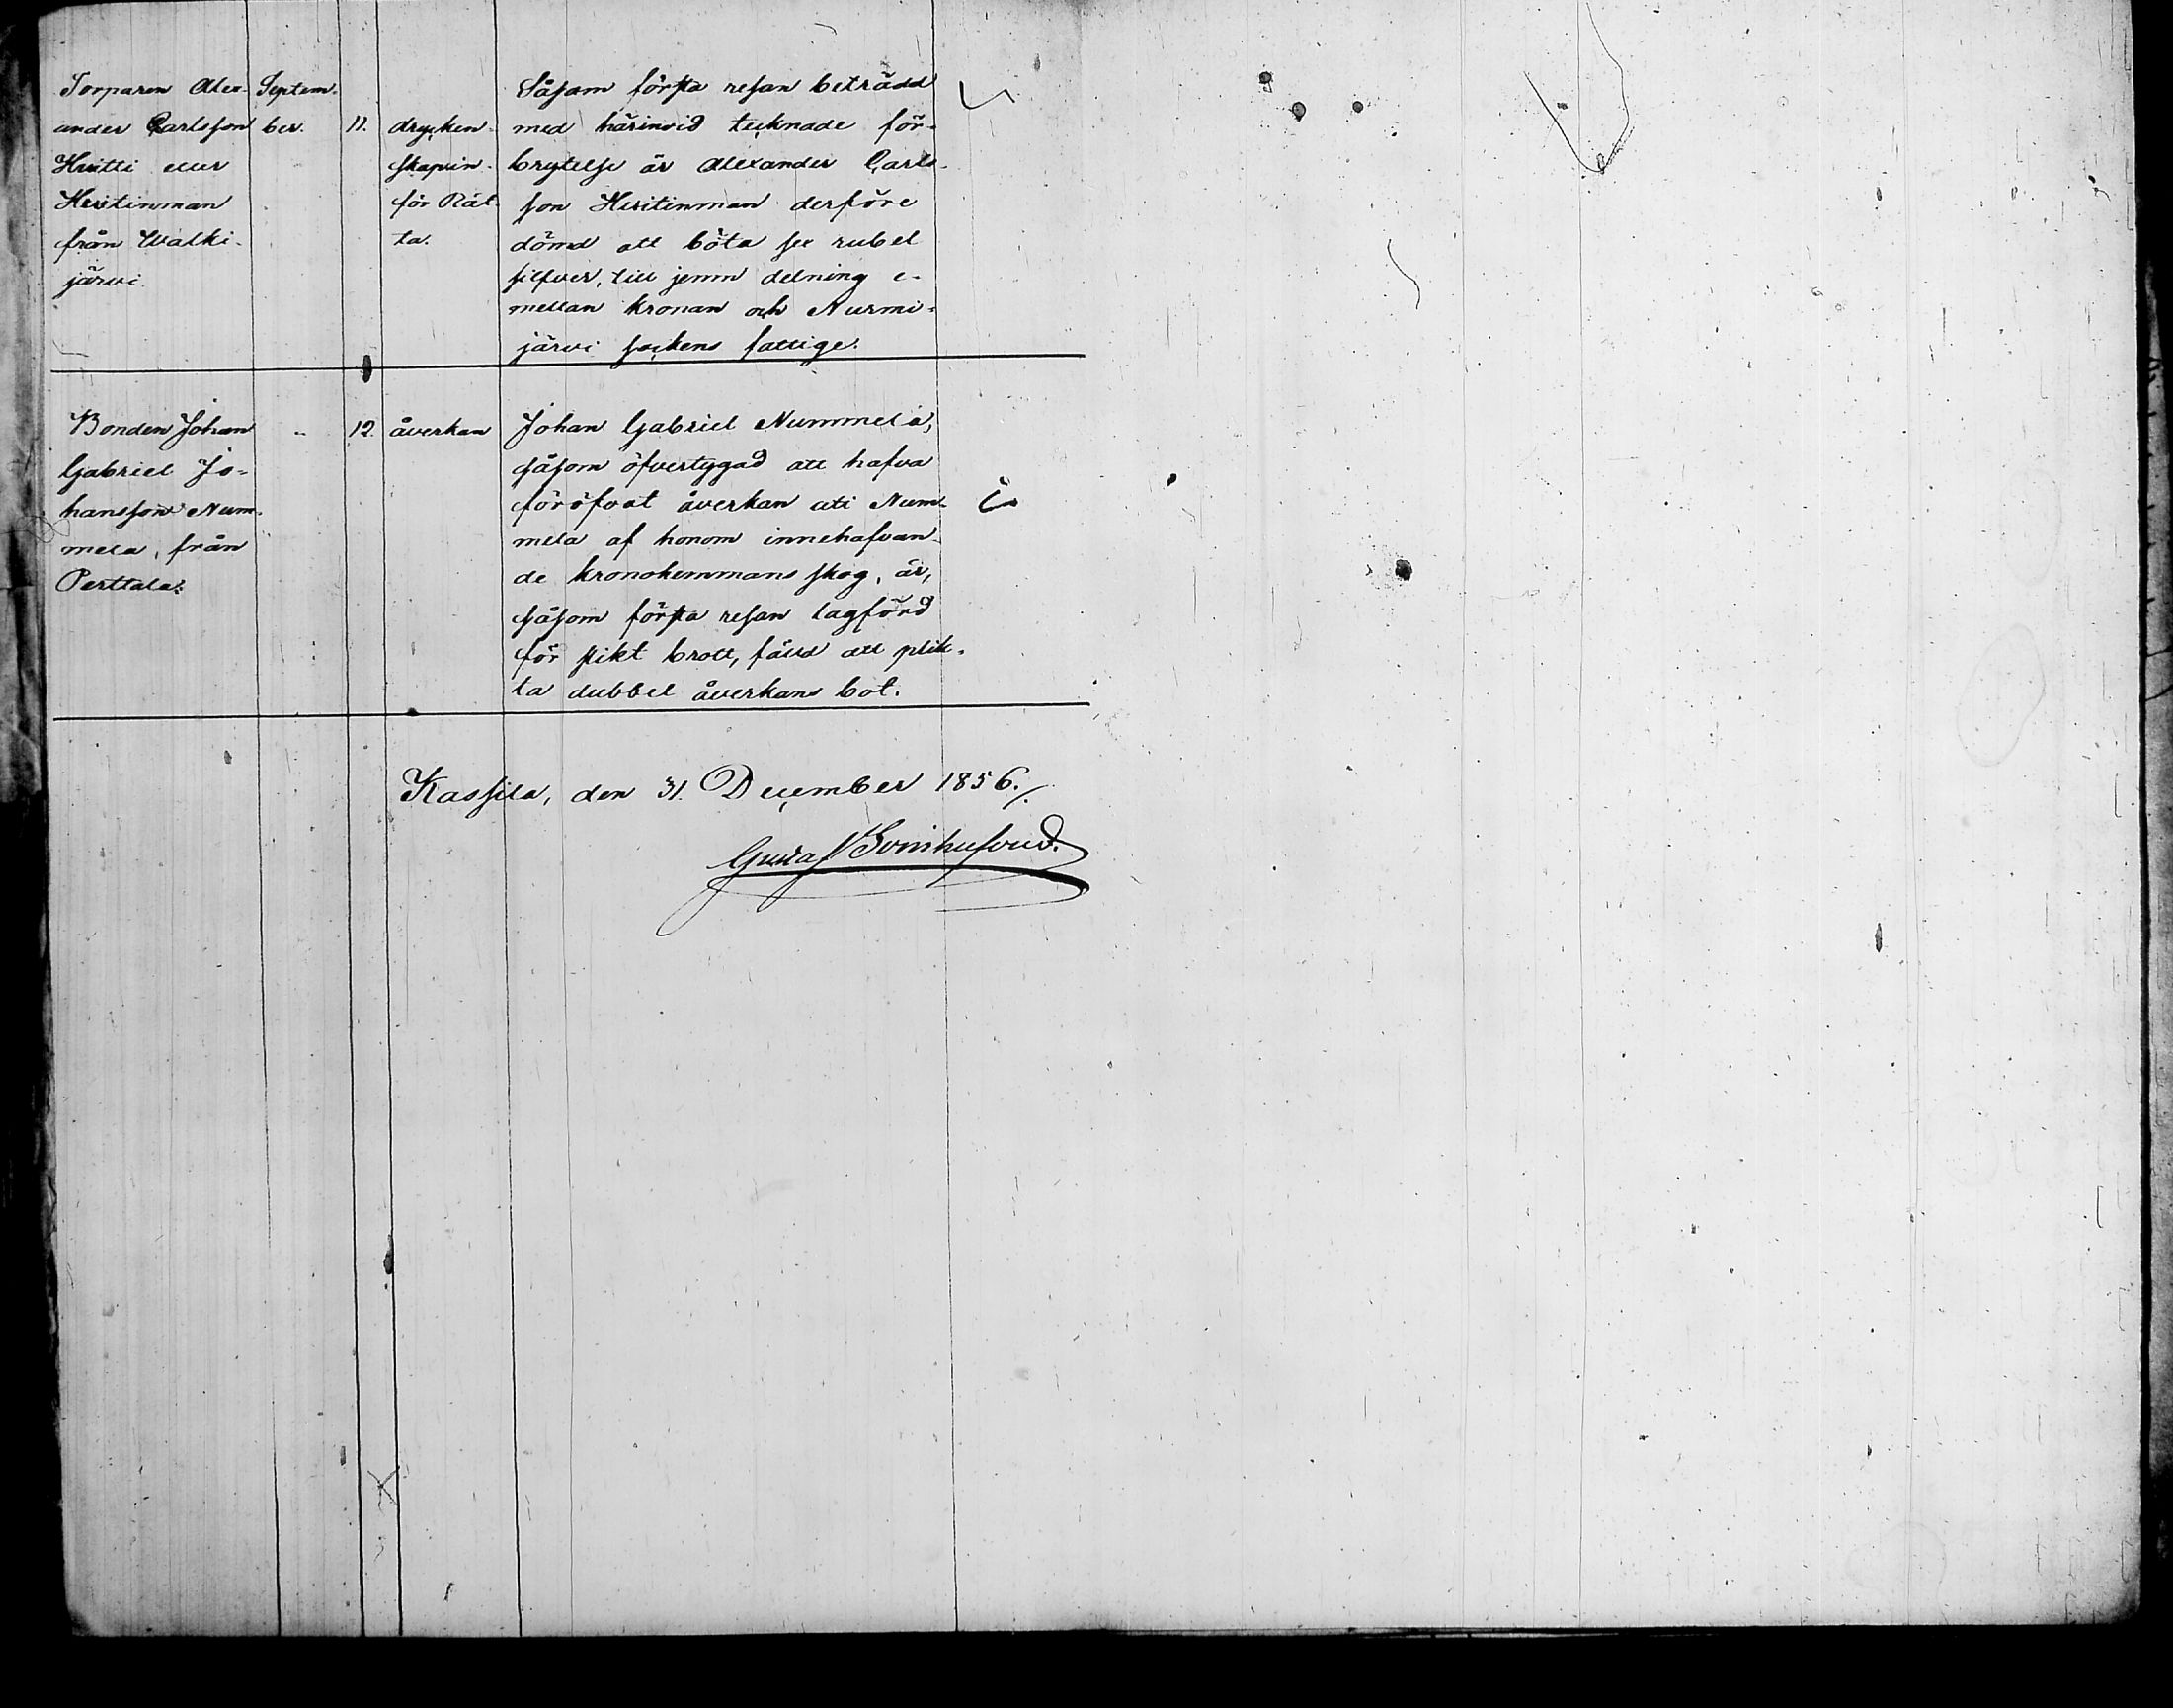 Torparen Alex-
ander Carlsson
Heitti eller
Heitinman
från Walki-
järvi
Septem-
ber.
11.
drycken-
skap in-
för Rät-
ta.
Såsom första resan beträdd
med härinvid tecknade för-
brytelse är Alexander Carls-
son Heitinman derföre
dömd att böta sex rubel
silfver, till jemn delning e-
mellan kronan och Nurmi-
järvi sockens fattige.
Bonden Johan
Gabriel Jo-
hansson Num-
mela, från
Perttala.
"
12.
åverkan
Johan Gabriel Nummela,
såsom öfvertygad att hafva
föröfvat åverkan uti Num-
mela af honom innehafvan-
de kronohemmans skog, är,
såsom första resan lagförd
för slikt brott, fälld att plik-
ta dubbel åverkans bot.
Kassila, den 31. December 1856./.
Gustaf Svinhufvud.